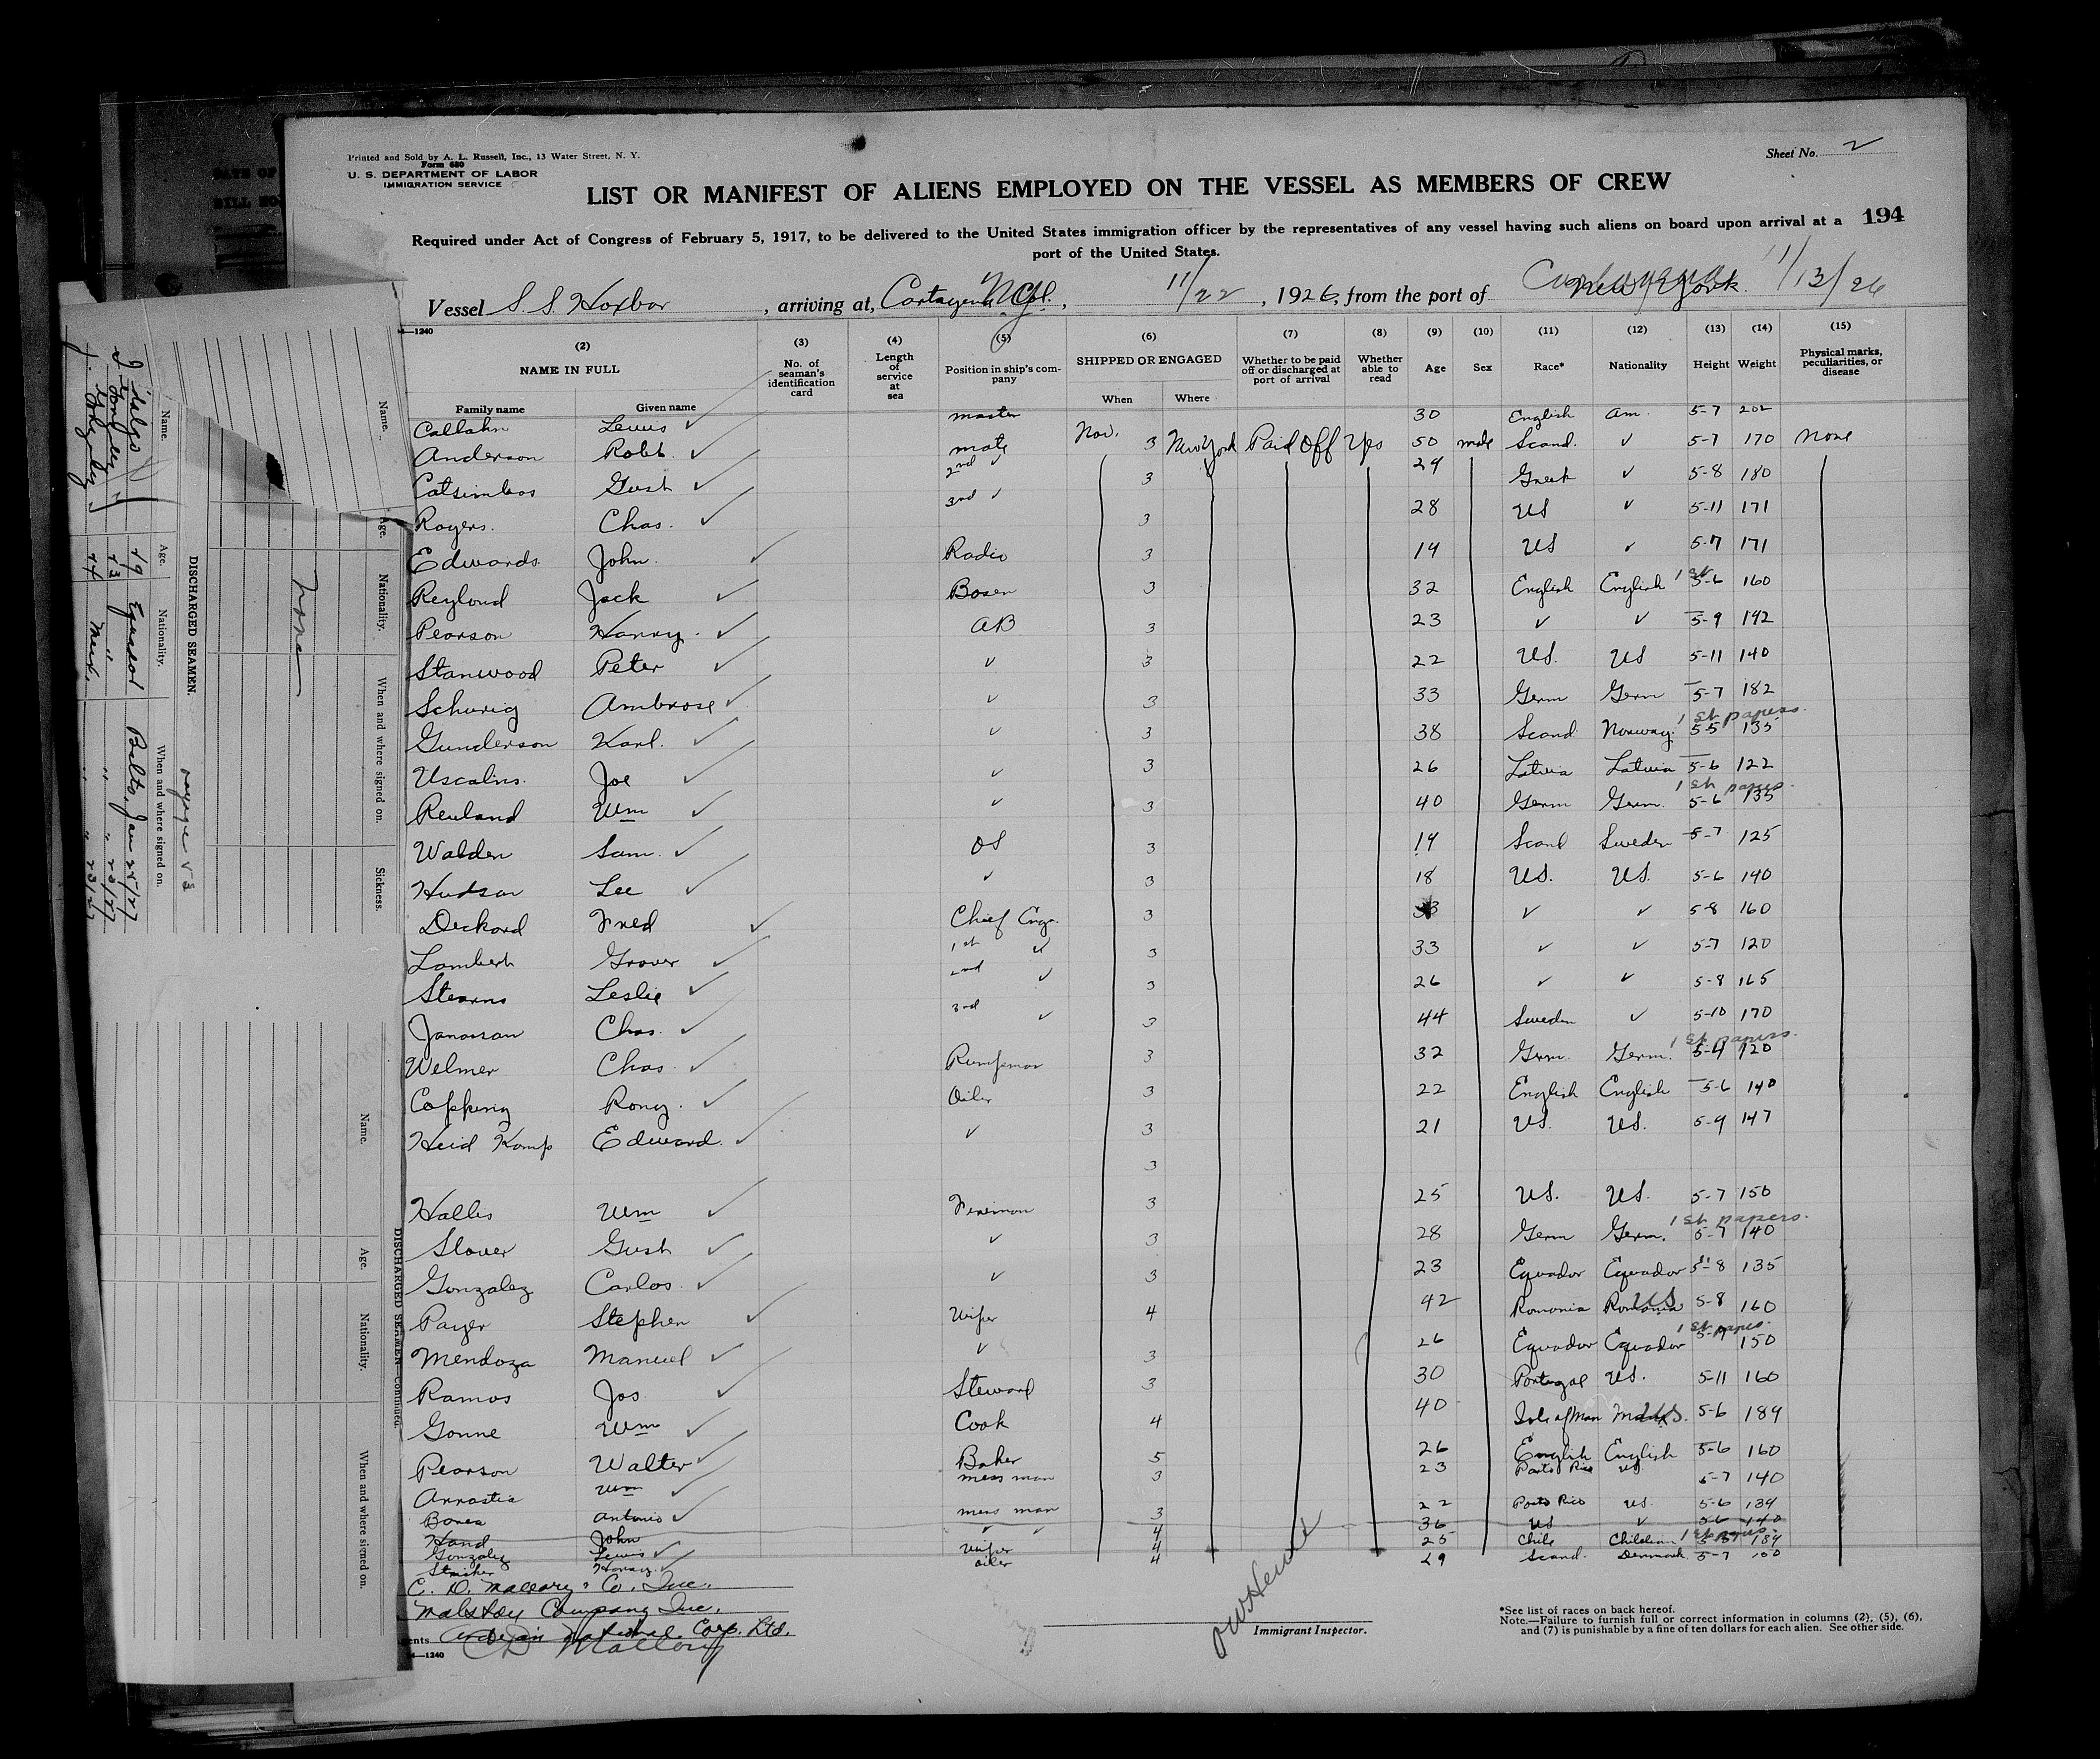 Printed and Sold by A. L. Russell, Inc., 13 Water Street, N. Y.
Form 680
U. S. DEPARTMENT OF LABOR
IMMIGRATION SERVICE
Sheet No. 2
LIST OR MANIFEST OF ALIENS EMPLOYED ON THE VESSEL AS MEMBERS OF CREW
194
Required under Act of Congress of February 5, 1917, to be delivered to the United States immigration officer by the representatives of any vessel having such aliens on board upon arrival at a
port of the United States.
Vessel S.S. Hoxbar, arriving at, Cartagena Col. N.Y., 11/22, 1926, from the port of New York. Cartagena 11/13/26
(2) (3) (4) (5) (6) (7) (8) (9) (10) (11) (12) (13) (14) (15)
NAME IN FULL No. of seaman's identification card Length of service at sea Position in ship's company SHIPPED OR ENGAGED Whether to be paid off or discharged at port of arrival Whether able to read Age Sex Race* Nationality Height Weight Physical marks, peculiarities, or disease
Family name Given name When Where
Callahn Lewis ✓ master 30 English Am. 5-7 202
Anderson Robt. ✓ mate Nov. 3 New York Paid Off Yes 50 male Scand. ✓ 5-7 170 None
Catsimbos Gust ✓ 2nd ✓ 3 29 Greek ✓ 5-8 180
Rogers. Chas. ✓ 3rd ✓ 3 28 US ✓ 5-11 171
Edwards John ✓ Radio 3 19 US ✓ 5-7 171
Reylond Jack ✓ Bosen 3 32 English English 1st 5-6 160
Pearson Harry. ✓ AB 3 23 ✓ ✓ 5-9 142
Stanwood Peter ✓ ✓ 3 22 US. US 5-11 140
Schurig Ambrose ✓ ✓ 3 33 Germ Germ 5-7 182
Gunderson Karl. ✓ ✓ 3 38 Scand Norway. 1st papers. 5-5 135
Uscalns. Joe ✓ ✓ 3 26 Latvia Latvia 5-6 122
Reuland Wm ✓ ✓ 3 40 Germ Germ. 1st papers. 5-6 135
Walden Sam. ✓ OS 3 19 Scand Sweden 5-7 125
Hudson Lee ✓ ✓ 3 18 US. US. 5-6 140
Deckard Fred ✓ Chief Engr. 3 ✓ ✓ 5-8 160
Lambert Grover ✓ 1st ✓ 3 33 ✓ ✓ 5-7 120
Stearns Leslie ✓ 2nd ✓ 3 26 ✓ ✓ 5-8 165
Janossan Chas. ✓ 3rd ✓ 3 44 Sweden ✓ 5-10 170
Welmer Chas ✓ Pumpman 3 32 Germ. Germ. 1st papers. 5-4 120
Copping Rony. ✓ Oiler 3 22 English English 5-6 140
Heid Kamp Edward. ✓ ✓ 3 21 US. US. 5-9 147
3
Hallis Wm ✓ Fireman 3 25 US. US. 5-7 150
Slover Gust ✓ ✓ 3 28 Germ Germ. 1st papers. 5-7 140
Gonzalez Carlos ✓ ✓ 3 23 Equador Equador 5-8 135
Payer Stephen ✓ Wiper 4 42 Romania Romania US 5-8 160
Mendoza Manuel ✓ ✓ 3 26 Equador Equador 1st papers. 150
Ramos Jos ✓ Steward 3 30 Portugal US. 5-11 160
Gonne Wm ✓ Cook 4 40 Isle of Man US. 5-6 189
Pearson Walter ✓ Baker 5 26 English English 5-6 160
Annastia Wm ✓ mess man 3 23 Porto Rico US 5-7 140
Bonea Antonio ✓ mess man 3 22 Porto Rico US. 5-6 134
Hand John ✓ ✓ 4 36 US ✓ 5-6 140
Gonzalez Lewis ✓ Wiper 4 25 Chile Chilean 1st papers 184
Harry ✓ Oiler 4 29 Scand. Denmark 5-7
C. D. Mallory & Co. Inc.
Malstoy Company Inc.
Andean National Corp. Ltd.
CD Mallory
Immigrant Inspector.
*See list of races on back hereof.
Note.—Failure to furnish full or correct information in columns (2), (5), (6),
and (7) is punishable by a fine of ten dollars for each alien. See other side.
—1240
DISCHARGED SEAMEN.
Name. Age. Nationality. When and where signed on.
19 Equador Balto. Jan 25/27
Name. Age. Nationality. When and where signed on. Sickness.
None
voyage
DISCHARGED SEAMEN—Continued.
Name. Age. Nationality. When and where signed on.